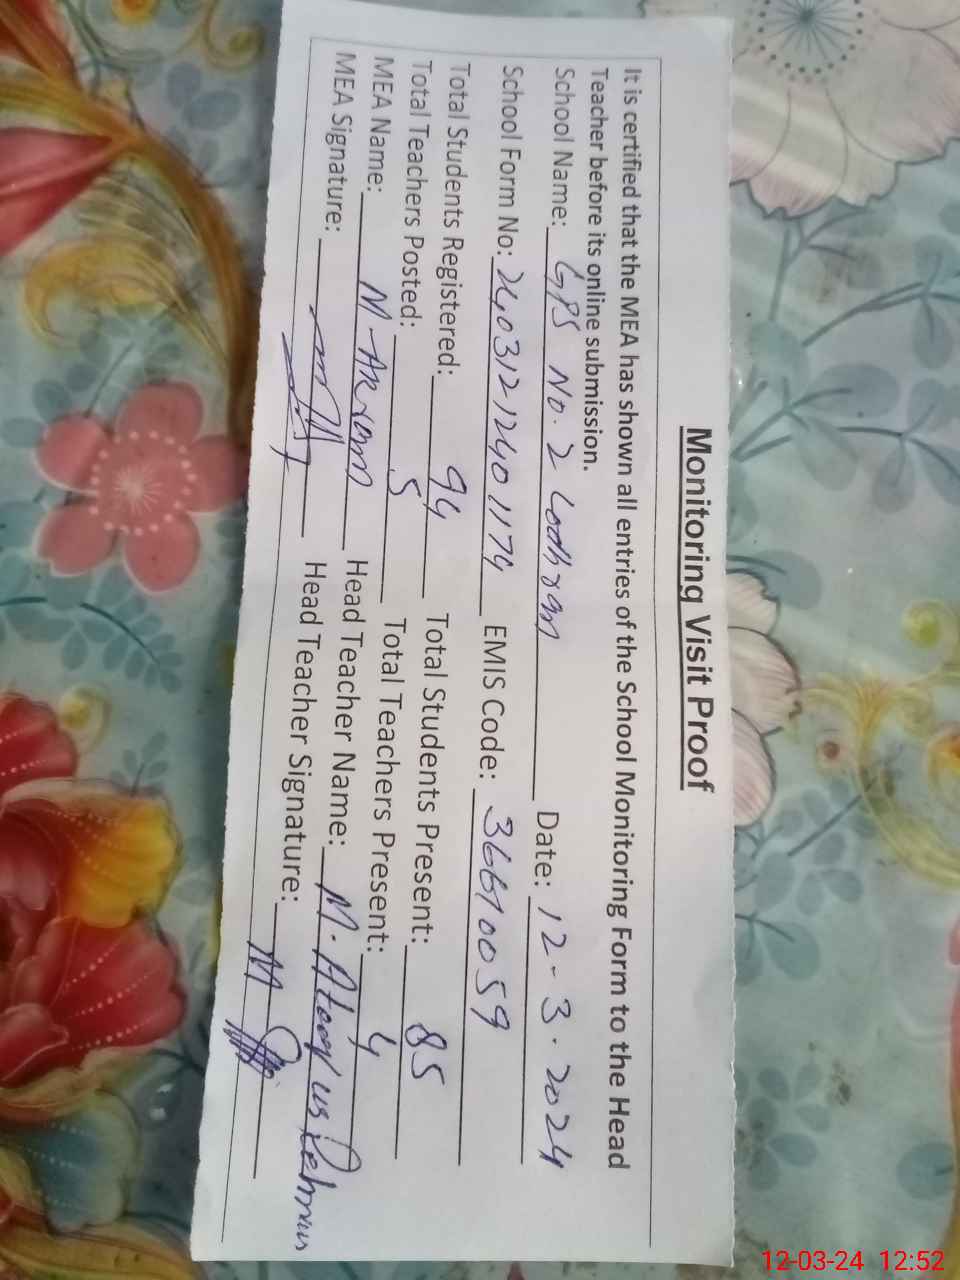 Monitoring Visit Proof
It is certified that the MEA has shown all entries of the School Monitoring Form to the Head
Teacher before its online submission.
School Name: GPS No. 2 Lodhran Date: 12-3-2024
School Form No: 24031212401174 EMIS Code: 36610059
Total Students Registered: 94 Total Students Present: 85
Total Teachers Posted: 5 Total Teachers Present: 4
MEA Name: M-Akram Head Teacher Name: M. Ateeq us Rehman
MEA Signature: Head Teacher Signature: M
12-03-24 12:52